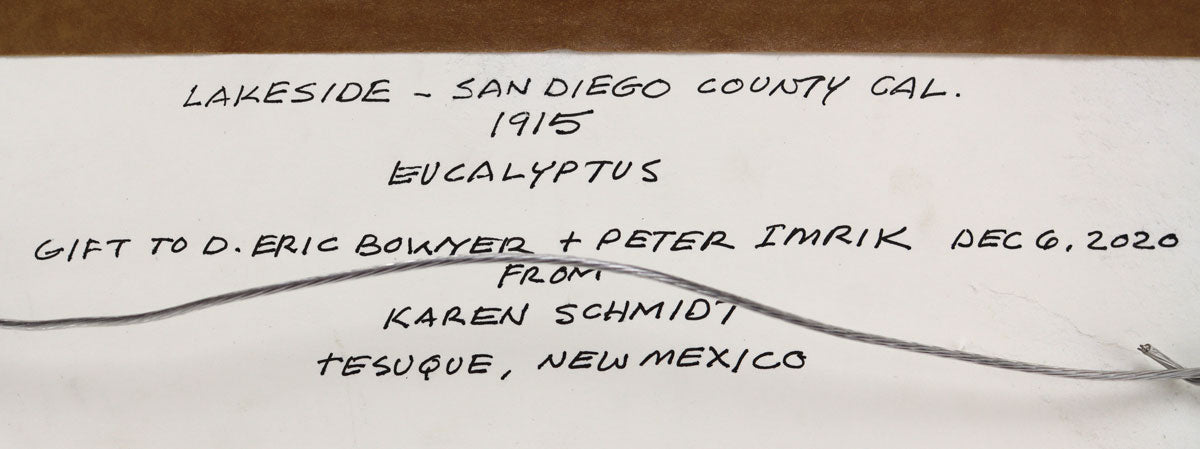 LAKESIDE - SAN DIEGO COUNTY CAL.
1915
EUCALYPTUS
GIFT TO D. ERIC BOWYER + PETER IMRIK DEC 6, 2020
FROM
KAREN SCHMIDT
TESUQUE, NEW MEXICO